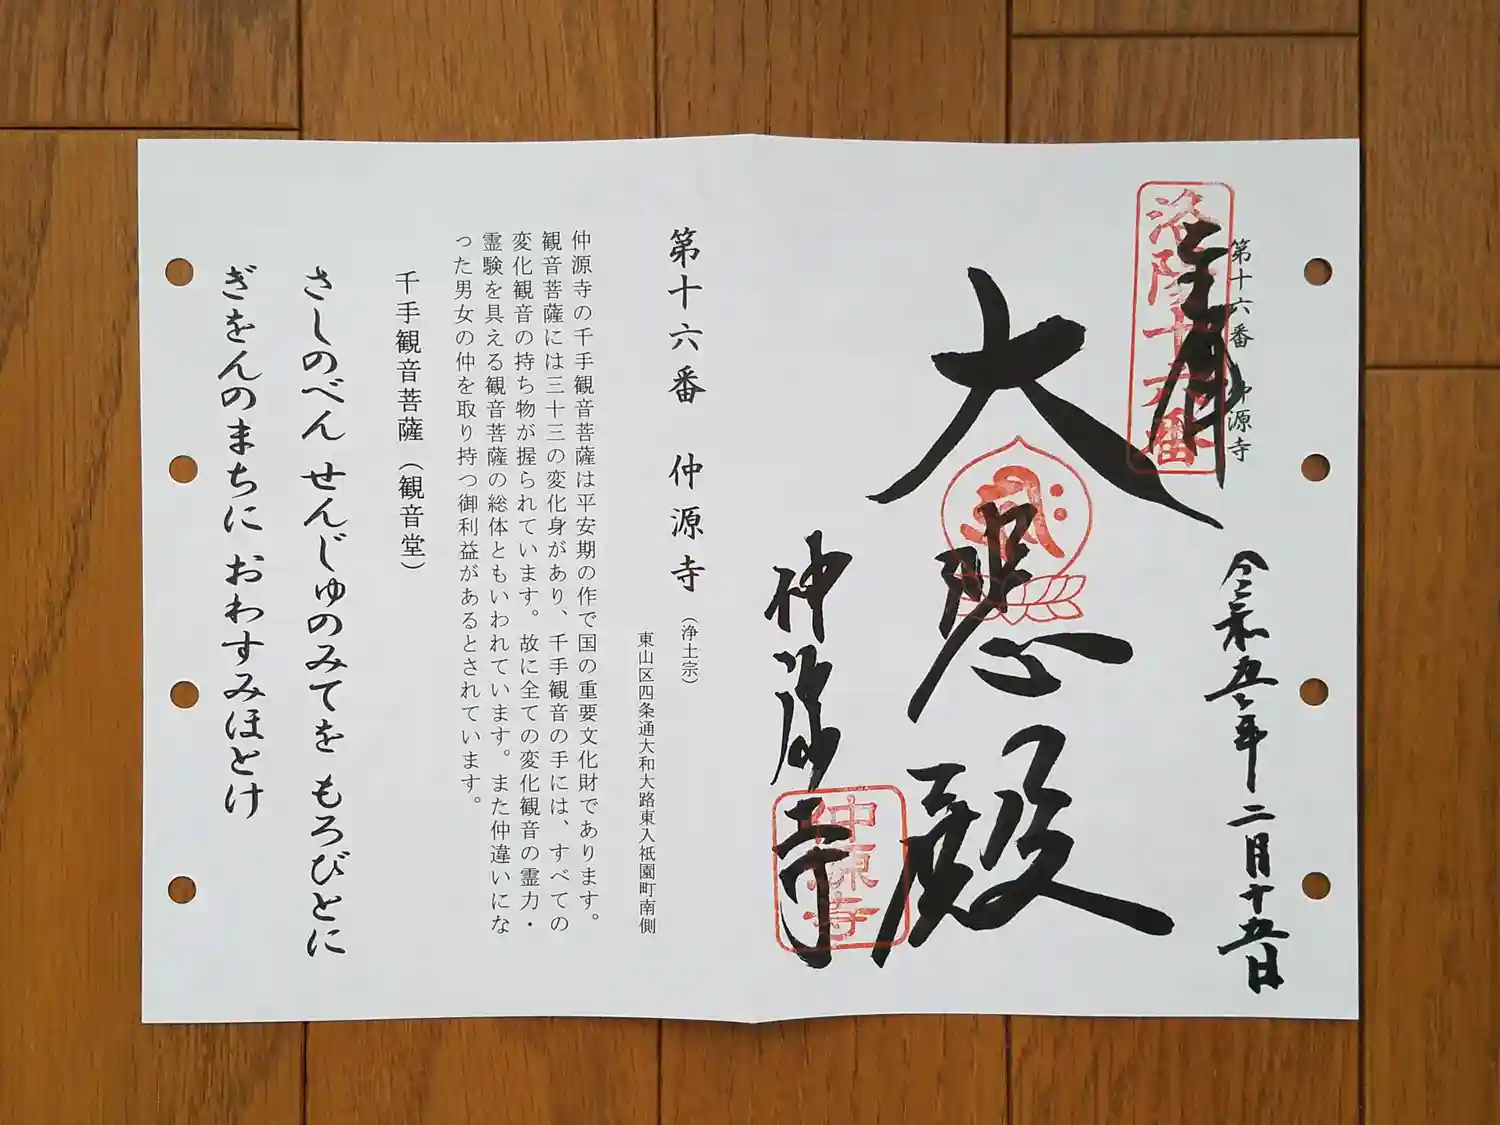 第十六番 仲源寺
洛陽十六番
奉拝
令和五年二月十五日
大悲殿
仲源寺
仲源寺
第十六番 仲源寺(浄土宗)
東山区四条通大和大路東入祇園町南側
仲源寺の千手観音菩薩は平安期の作で国の重要文化財であります。
観音菩薩には三十三の変化身があり、千手観音の手には、すべての
変化観音の持ち物が握られています。故に全ての変化観音の霊力・
霊験を具える観音菩薩の総体ともいわれています。また仲違いにな
った男女の仲を取り持つ御利益があるとされています。
千手観音菩薩(観音堂)
さしのべん せんじゅのみてを もろびとに
ぎをんのまちに おわすみほとけ